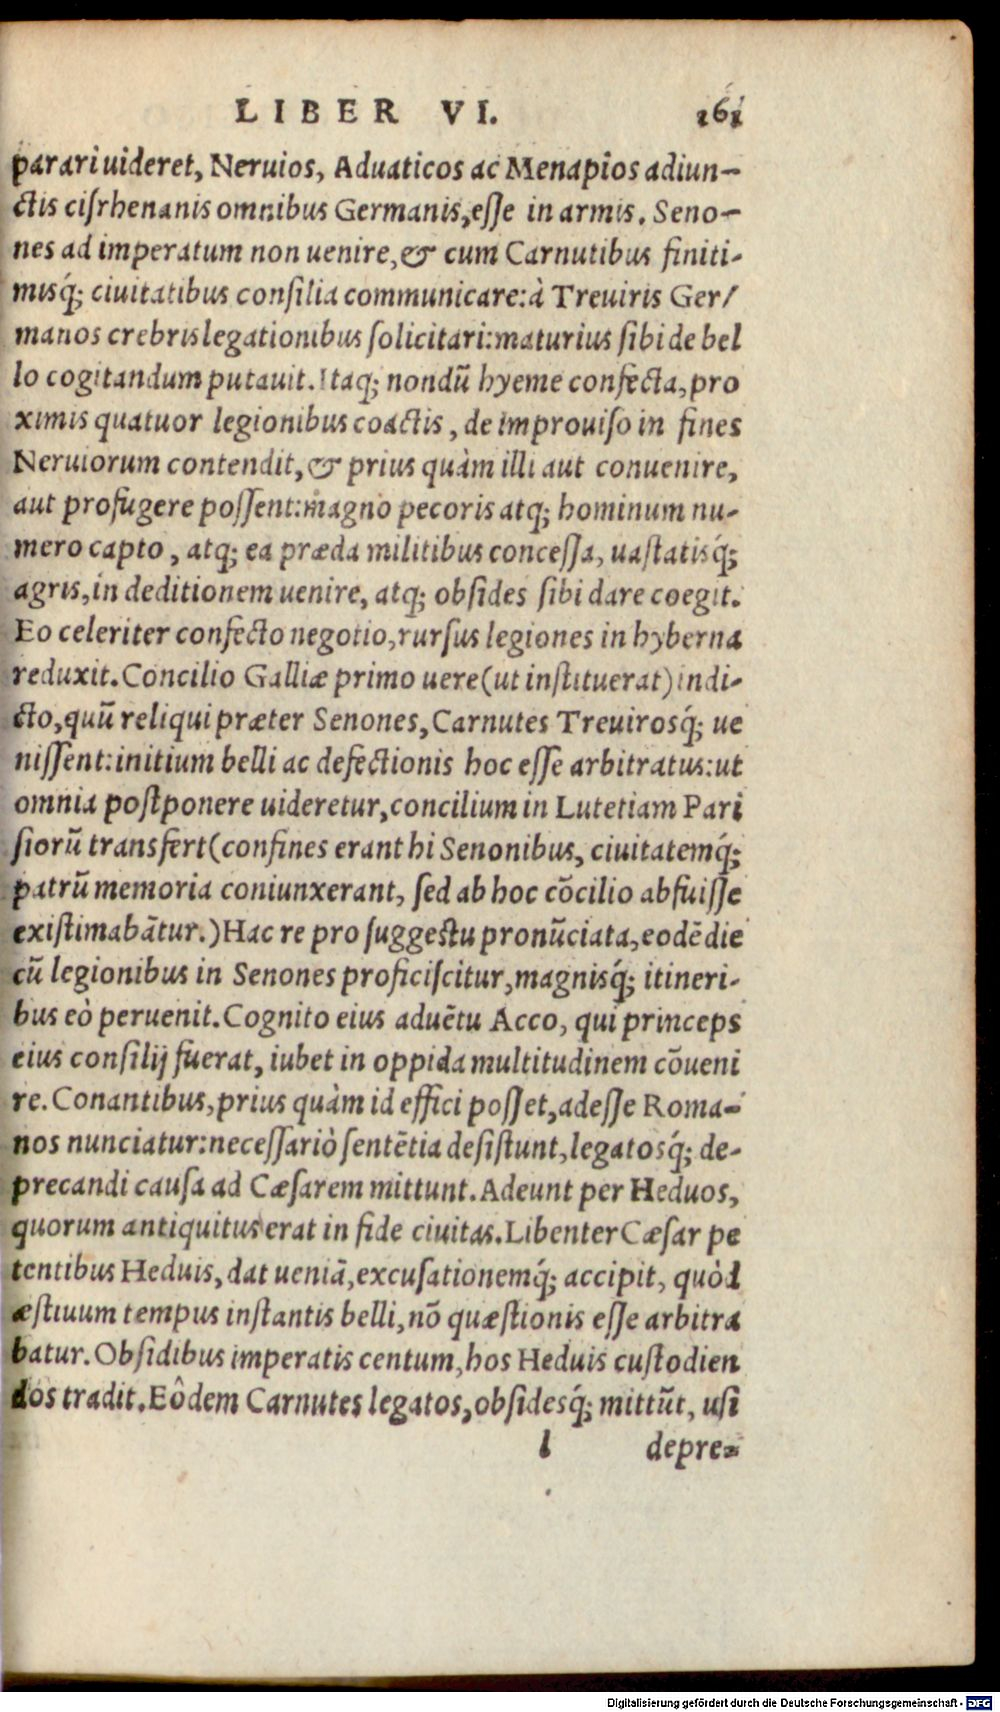 LIBER VI. 161
parari uideret, Neruios, Aduaticos ac Menapios adiun-
ctis cisrhenanis omnibus Germanis, esse in armis. Seno-
nes ad imperatum non uenire, & cum Carnutibus finiti-
misq́; ciuitatibus consilia communicare: à Treuiris Ger/
manos crebris legationibus solicitari: maturius sibi de bel
lo cogitandum putauit. Itaq; nondũ hyeme confecta, pro
ximis quatuor legionibus coactis, de improuiso in fines
Neruiorum contendit, & prius quàm illi aut conuenire,
aut profugere possent: magno pecoris atq; hominum nu-
mero capto, atq; ea præda militibus concessa, uastatisq́;
agris, in deditionem uenire, atq; obsides sibi dare coegit.
Eo celeriter confecto negotio, rursus legiones in hyberna
reduxit. Concilio Galliæ primo uere (ut instituerat) indi-
cto, quũ reliqui præter Senones, Carnutes Treuirosq́; ue
nissent: initium belli ac defectionis hoc esse arbitratus: ut
omnia postponere uideretur, concilium in Lutetiam Pari
siorũ transfert (confines erant hi Senonibus, ciuitatemq́;
patrũ memoria coniunxerant, sed ab hoc cõcilio abfuisse
existimabãtur.) Hac re pro suggestu pronũciata, eodẽ die
cũ legionibus in Senones proficiscitur, magnisq́; itineri-
bus eò peruenit. Cognito eius aduẽtu Acco, qui princeps
eius consilij fuerat, iubet in oppida multitudinem cõueni
re. Conantibus, prius quàm id effici posset, adesse Roma-
nos nunciatur: necessariò sentẽtia desistunt, legatosq́; de-
precandi causa ad Cæsarem mittunt. Adeunt per Heduos,
quorum antiquitus erat in fide ciuitas. Libenter Cæsar pe
tentibus Heduis, dat ueniã, excusationemq́; accipit, quòd
æstiuum tempus instantis belli, nõ quæstionis esse arbitra
batur. Obsidibus imperatis centum, hos Heduis custodien
dos tradit. Eôdem Carnutes legatos, obsidesq́; mittũt, usi
l depre-
Digitalisierung gefördert durch die Deutsche Forschungsgemeinschaft - DFG